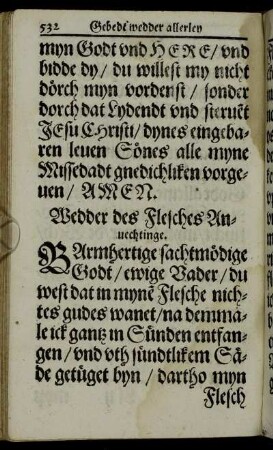 532 Gebedt wedder allerley
myn Godt vnd HERE / vnd
bidde dy / du willest my nicht
dörch myn vordenst / sonder
dorch dat Lydendt vnd steruēt
JEsu CHristi / dynes eingeba-
ren leuen Sönes alle myne
Missedadt gnedichliken vorge-
uen / AMEN.
Wedder des Flesches An-
uechtinge.
BArmhertige sachtmödige
Godt / ewige Vader / du
west dat in mynē Flesche nich-
tes gudes wanet / na demma-
le ick gantz in Sünden entfan-
gen / vnd vth sündtlikem Sa-
de getüget byn / dartho myn
Flesch